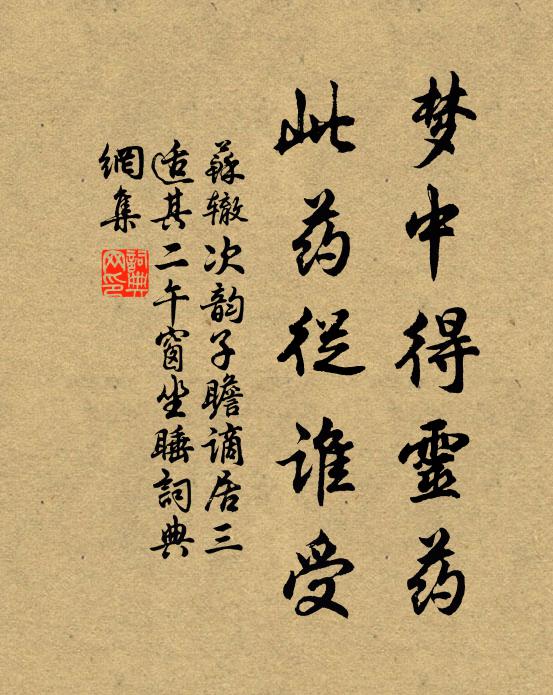 梦中得靈药
此药從谁受
蘇辙次韵子瞻谪居三
适其二午窗坐睡詞典
網集
詞典
网印